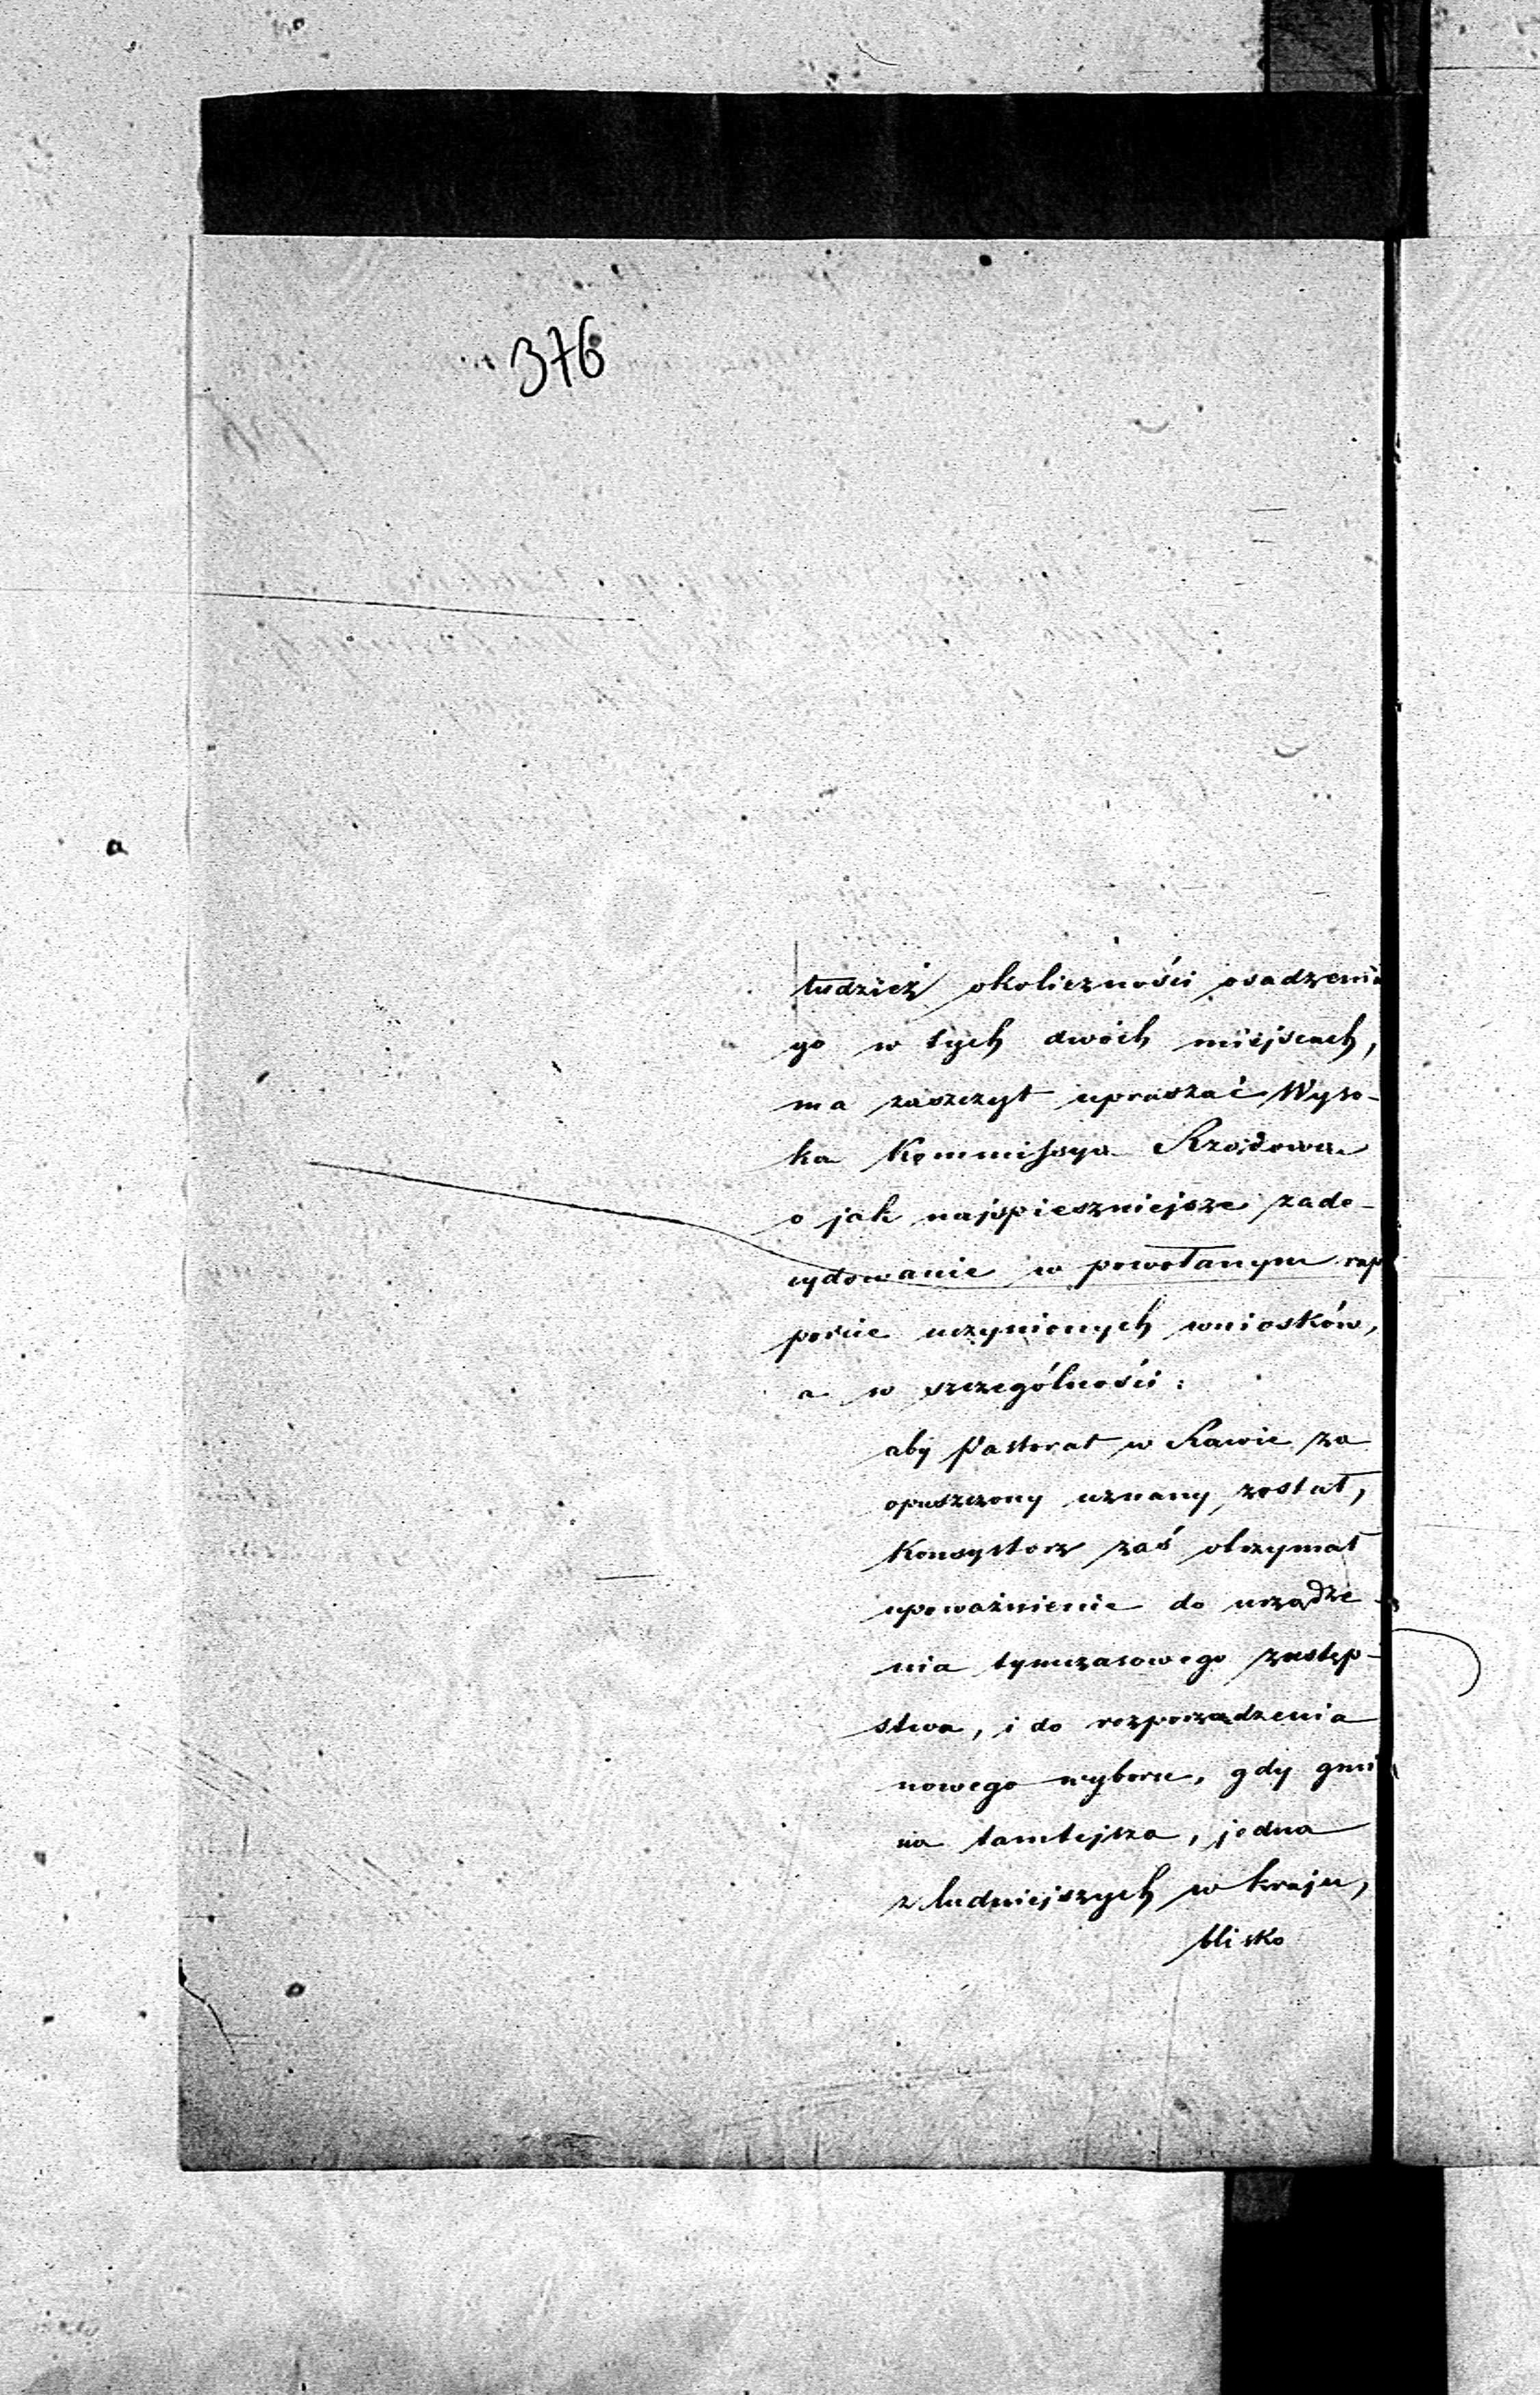 376
tudzież okoliczności osadzenia
go w tych dwóch miejscach,
ma zaszczyt upraszać Wyso-
ka Kommissya Rządowa
o jak najspieszniejsze zade-
cydowanie w powołanym rap
porcie uczynionych wniosków,
a w szczególności:
aby Pastorat w Rawie za
opuszczony uznany został,
Konsystorz zaś otrzymał
upoważnienie do urządze
nia tymczasowego zastęp-
stwa, i do rozporządzenia
nowego wyboru, gdy gmi
na tamtejsza, jedna
z ludniejszych w kraju,
blisko